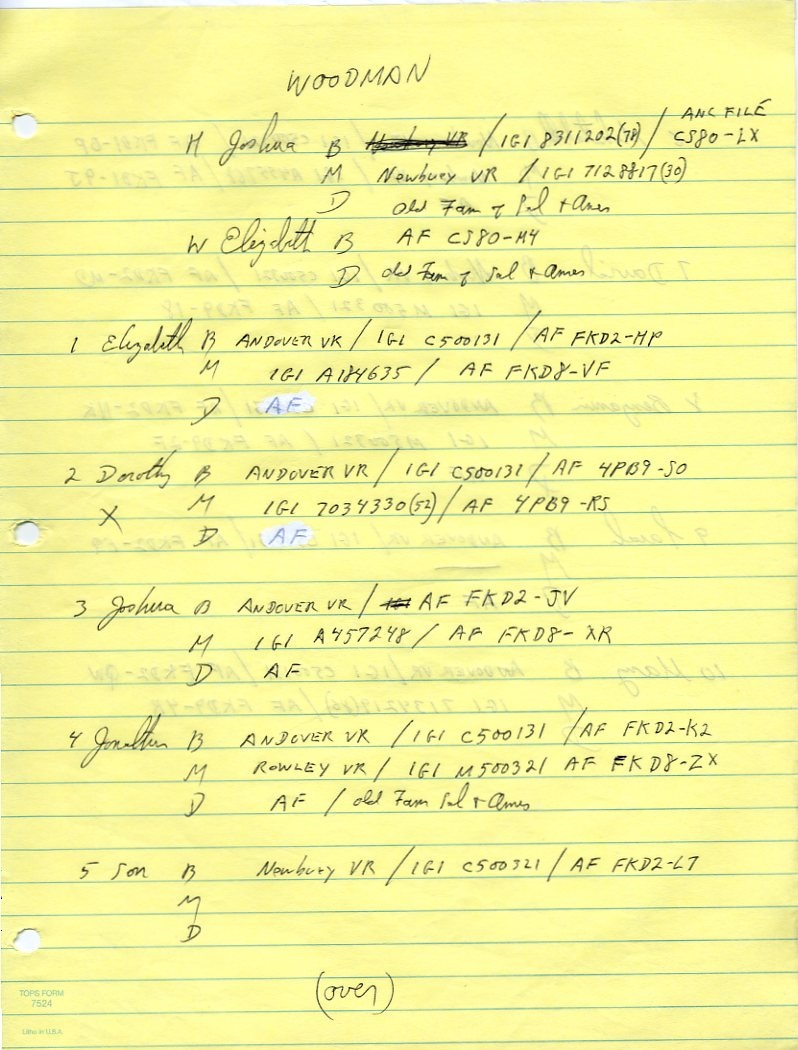 WOODMAN
ANC FILE
H Joshua B Newbury VR / IGI 8311202(78) / CS80-LX
M Newbury VR / IGI 7128817(30)
D Old Fam of Sal + Ames
W Elizabeth B AF CS80-M4
D old Fam of Sal + Ames
1 Elizabeth B ANDOVER VR / IGI C500131 / AF FKD2-HP
M IGI A184635 / AF FKD8-VF
D AF
2 Dorothy B ANDOVER VR / IGI C500131 / AF 4PB9-S0
X M IGI 7034330(52) / AF 4PB9-RS
D AF
3 Joshua B ANDOVER VR / IGI AF FKD2-JV
M IGI A457248 / AF FKD8-XR
D AF
4 Jonathan B ANDOVER VR / IGI C500131 / AF FKD2-K2
M ROWLEY VR / IGI M500321 AF FKD8-ZX
D AF / old Fam Sal + Ames
5 Son B Newbury VR / IGI C500321 / AF FKD2-L7
M
D
(over)
TOPS FORM
7524
Litho in U.S.A.